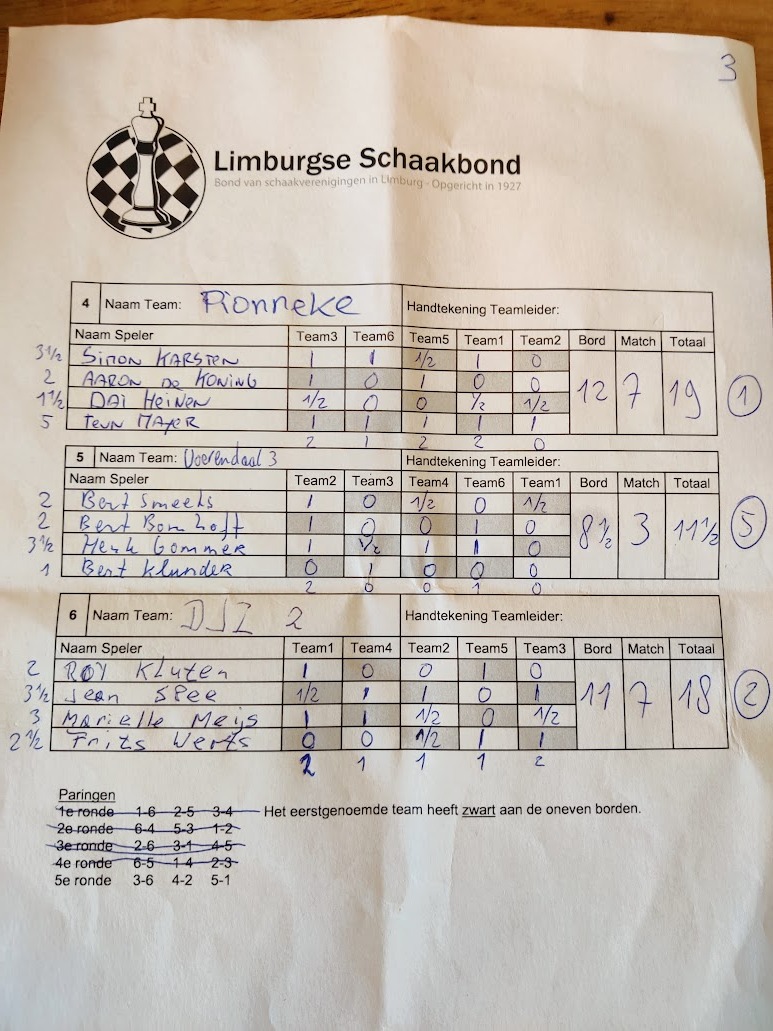 3
Limburgse Schaakbond
Bond van schaakverenigingen in Limburg - Opgericht in 1927
4 Naam Team: Pionneke Handtekening Teamleider:
Naam Speler Team3 Team6 Team5 Team1 Team2 Bord Match Totaal
3 1/2 SIMON KARSTEN 1 1 1/2 1 0
2 AARON DE KONING 1 0 1 0 0
12 7 19 1
1 1/2 DAI HEINEN 1/2 0 0 1/2 1/2
5 TEUN MAJER 1 1 1 1 1
2 1 2 2 0
5 Naam Team: Voerendaal 3 Handtekening Teamleider:
Naam Speler Team2 Team3 Team4 Team6 Team1 Bord Match Totaal
2 Bert Smeets 1 0 1/2 0 1/2
2 Bert Bomhoff 1 0 0 1 0
8 1/2 3 11 1/2 5
3 1/2 Henk Gommer 1 1/2 1 1 0
1 Bert Klunder 0 1 0 0 0
2 0 0 1 0
6 Naam Team: DJZ 2 Handtekening Teamleider:
Naam Speler Team1 Team4 Team2 Team5 Team3 Bord Match Totaal
2 ROY Kluten 1 0 0 1 0
3 1/2 Jean SPee 1/2 1 1 0 1
11 7 18 2
3 Marielle Meijs 1 1 1/2 0 1/2
2 1/2 Frits Werts 0 0 1/2 1 1
2 1 1 1 2
Paringen
1e ronde 1-6 2-5 3-4 Het eerstgenoemde team heeft zwart aan de oneven borden.
2e ronde 6-4 5-3 1-2
3e ronde 2-6 3-1 4-5
4e ronde 6-5 1-4 2-3
5e ronde 3-6 4-2 5-1